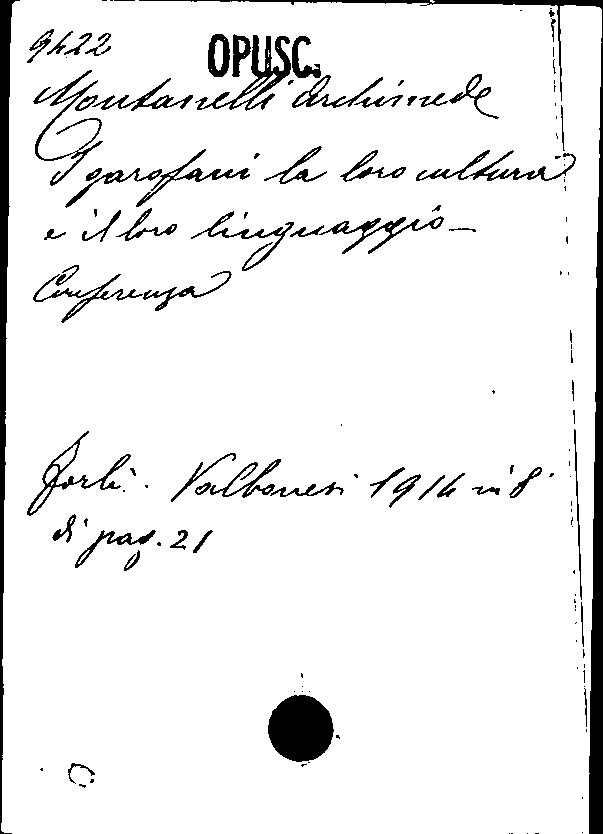 9422
OPUSC.
Montanelli Archimede
I garofani la loro cultura
e il loro linguaggio -
Conferenza
Forlì. Valbonesi 1914 in 8°
di pag. 21